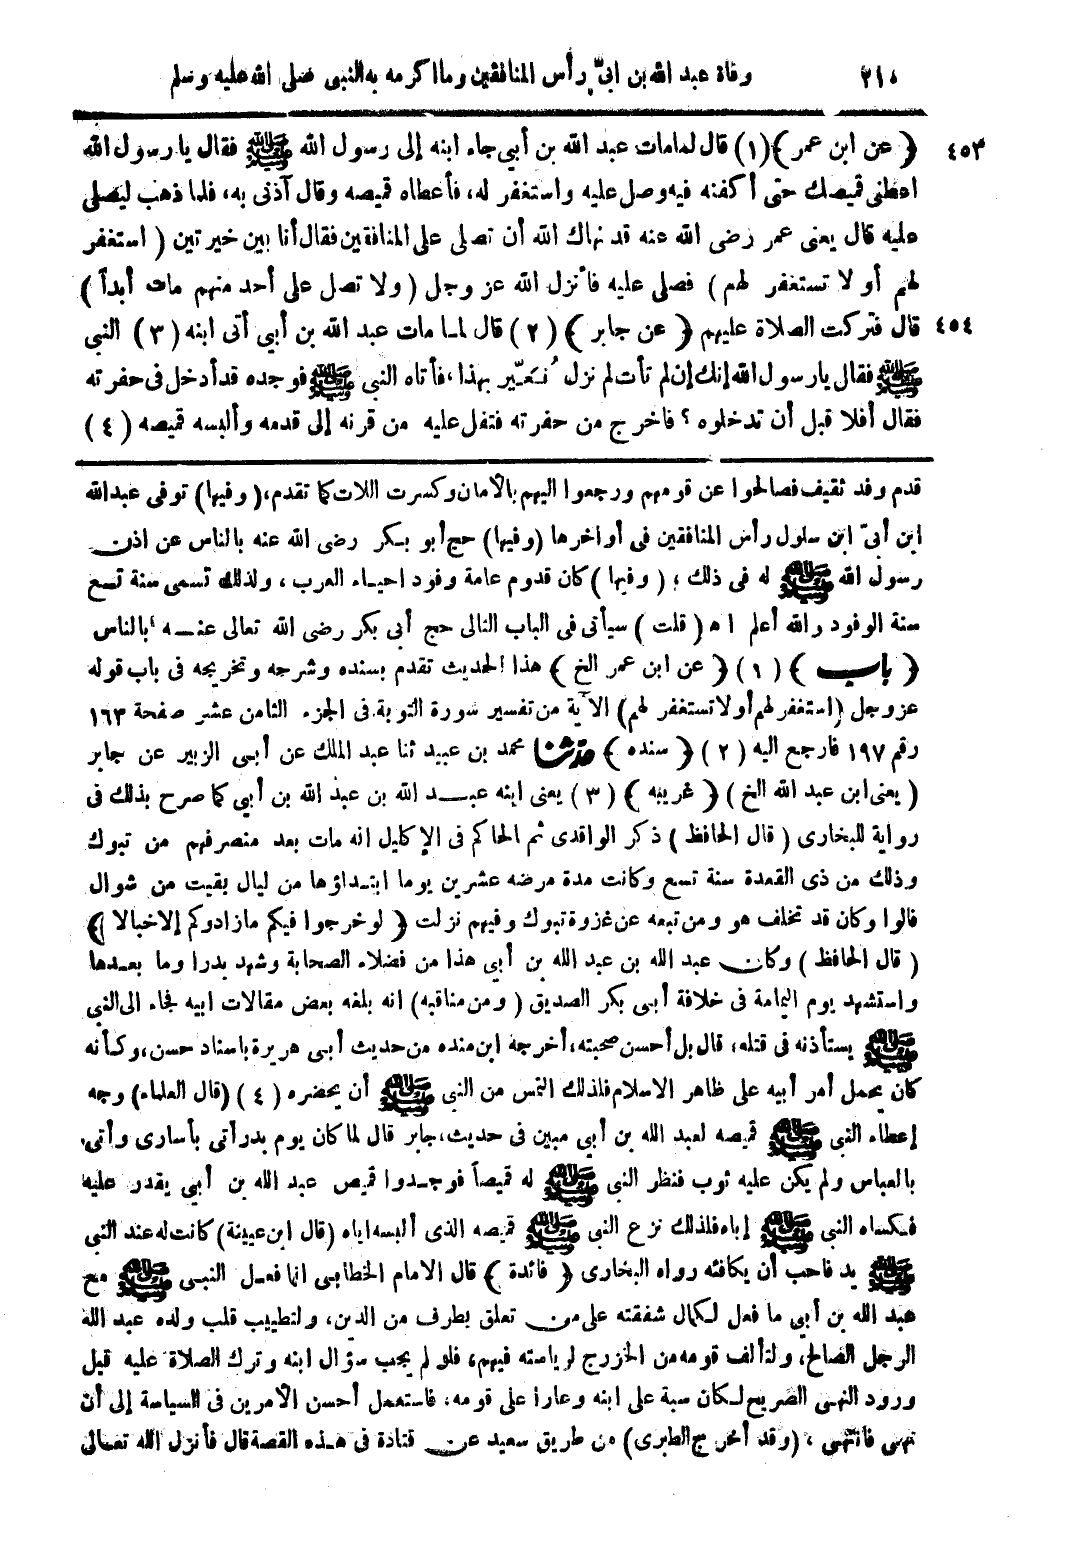 ٢١٠ وفاة عبد الله بن ابيّ رأس المنافقين وما اكرمه به النبى صلى الله عليه وسلم
٤٥٣ ﴿ عن ابن عمر ﴾ (١) قال لما مات عبد الله بن أبي جاء ابنه إلى رسول الله ﷺ فقال يا رسول الله
اعطنى قميصك حتى أكفنه فيه وصل عليه واستغفر له، فأعطاه قميصه وقال آذنى به، فلما ذهب ليصلى
عليه قال يعنى عمر رضى الله عنه قد نهاك الله أن تصلى على المنافقين فقال أنا بين خيرتين ( استغفر
لهم أو لا تستغفر لهم ) فصلى عليه فأنزل الله عز وجل ( ولا تصل على أحد منهم مات أبداً )
٤٥٤ قال فتركت الصلاة عليهم ﴿ عن جابر ﴾ (٢) قال لما مات عبد الله بن أبي أتى ابنه (٣) النبى
ﷺ فقال يا رسول الله إنك إن لم تأت لم نزل نُعَيّر بهذا، فأتاه النبى ﷺ فوجده قد أدخل فى حفرته
فقال أفلا قبل أن تدخلوه ؟ فاخرج من حفرته فتفل عليه من قرنه إلى قدمه وألبسه قميصه (٤)
قدم وفد ثقيف فصالحوا عن قومهم ورجعوا اليهم بالأمان وكسرت اللات كما تقدم، ( وفيها) توفى عبدالله
ابن أبىّ ابن سلول رأس المنافقين فى أواخرها (وفيها) حج أبو بكر رضى الله عنه بالناس عن اذن
رسول الله ﷺ له فى ذلك ؛ ( وفيها ) كان قدوم عامة وفود احياء العرب ، ولذلك تسمى سنة تسع
سنة الوفود والله أعلم اه ( قلت ) سيأتى فى الباب التالى حج أبي بكر رضى الله تعالى عنه بالناس
﴿ باب ﴾ (١) ﴿ عن ابن عمر الخ ﴾ هذا الحديث تقدم بسنده وشرحه وتخريجه فى باب قوله
عز وجل (استغفر لهم أو لا تستغفر لهم) الآية من تفسير سورة التوبة فى الجزء الثامن عشر صفحة ١٦٣
رقم ١٩٧ فارجع اليه (٢) ﴿ سنده ﴾ حدثنا محمد بن عبيد ثنا عبد الملك عن أبى الزبير عن جابر
( يعنى ابن عبد الله الخ ) ﴿ غريبه ﴾ (٣) يعنى ابنه عبد الله بن عبد الله بن أبي كما صرح بذلك فى
رواية للبخارى ( قال الحافظ ) ذكر الواقدى ثم الحاكم فى الإكليل انه مات بعد منصرفهم من تبوك
وذلك من ذى القعدة سنة تسع وكانت مدة مرضه عشرين يوما ابتداؤها من ليال بقيت من شوال
قالوا وكان قد تخلف هو ومن تبعه عن غزوة تبوك وفيهم نزلت ﴿ لو خرجوا فيكم مازادوكم إلا خبالا ﴾
( قال الحافظ ) وكان عبد الله بن عبد الله بن أبي هذا من فضلاء الصحابة وشهد بدرا وما بعدها
واستشهد يوم اليمامة فى خلافة أبى بكر الصديق ( ومن مناقبه) انه بلغه بعض مقالات ابيه فجاء الى النبى
ﷺ يستأذنه فى قتله، قال بل أحسن صحبته، أخرجه ابن منده من حديث أبى هريرة باسناد حسن، وكأنه
كان يحمل أمر أبيه على ظاهر الاسلام فلذلك التمس من النبى ﷺ أن يحضره (٤) (قال العلماء) وجه
إعطاء النبى ﷺ قميصه لعبد الله بن أبي مبين فى حديث، جابر قال لما كان يوم بدر أتى بأسارى وأتى
بالعباس ولم يكن عليه ثوب فنظر النبى ﷺ له قميصاً فوجدوا قميص عبد الله بن أبي يقدر عليه
فكساه النبى ﷺ إياه فلذلك نزع النبى ﷺ قميصه الذى ألبسه اياه (قال ابن عيينة) كانت له عند النبى
ﷺ يد فاحب أن يكافئه رواه البخارى ﴿ فائدة ﴾ قال الامام الخطابى انما فعل النبى ﷺ مع
عبد الله بن أبي ما فعل لكمال شفقته على من تعلق بطرف من الدين، ولتطييب قلب ولده عبد الله
الرجل الصالح، ولتألف قومه من الخزرج لرياسته فيهم، فلو لم يجب سؤال ابنه وترك الصلاة عليه قبل
ورود النهى الصريح لكان سبة على ابنه وعارا على قومه، فاستعمل أحسن الأمرين فى السياسة إلى أن
نهى فانتهى ، (وقد أخرج الطبرى) من طريق سعيد عن قتادة فى هذه القصة قال فأنزل الله تعالى